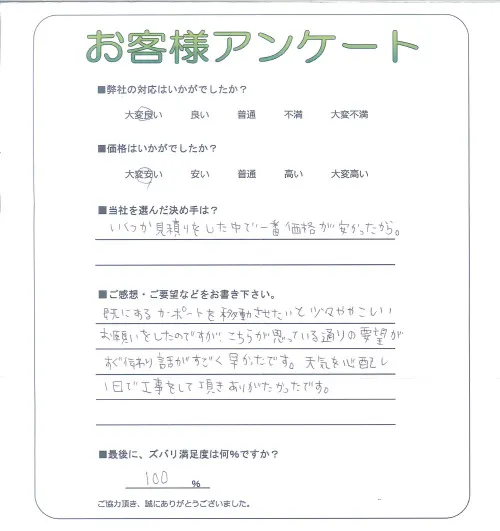 お客様アンケート
■弊社の対応はいかがでしたか？
大変良い 良い 普通 不満 大変不満
■価格はいかがでしたか？
大変安い 安い 普通 高い 大変高い
■当社を選んだ決め手は？
いくつか見積りをした中で一番価格が安かったから。
■ご感想・ご要望などをお書き下さい。
既にあるカーポートを移動させたいと少々ややこしい
お願いをしたのですが、こちらが思っている通りの要望が
すぐ伝わり話がすごく早かったです。天気を心配し
1日で工事をして頂きありがたかったです。
■最後に、ズバリ満足度は何％ですか？
100 %
ご協力頂き、誠にありがとうございました。